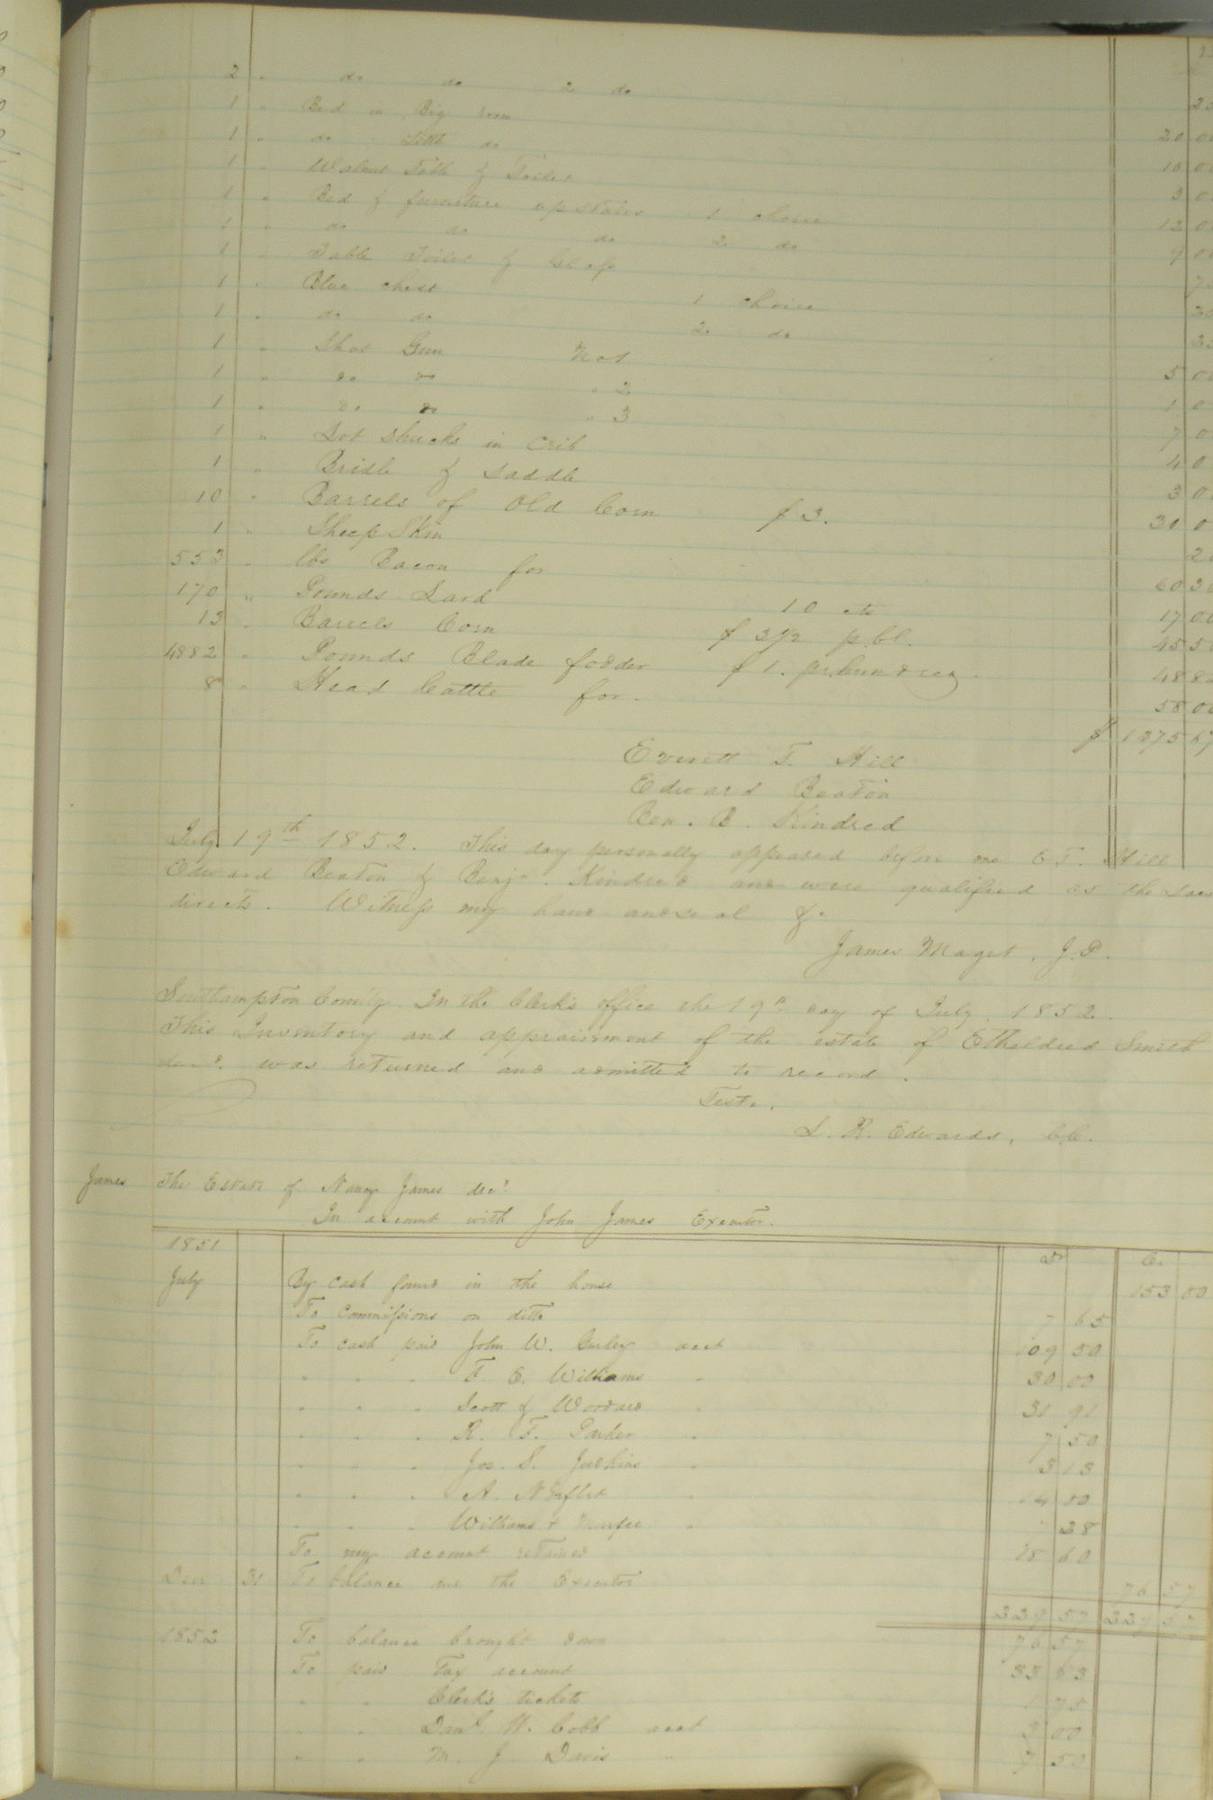 2 " do do 2 do
1 " Bed in Big room 20 0
1 " do Little do 10 0
1 " Walnut Table & Toilet 3 0
1 " Bed & furniture up stairs 1 choice 12 0
1 " do do do 2 do 9 0
1 " Table Toilet & Glass
1 " Blue chest 1 choice
1 " do do 2 do
1 " Shot Gun No 1 5 0
1 " do do " 2 1 0
1 " do do " 3 7 0
1 " Lot shucks in crib 4 0
1 " Bridle & saddle 3 0
10 " Barrels of Old Corn $3. 30 0
1 " Sheep Skin
553 " lbs Bacon for 60 3
170 " Pounds Lard 10 cts 17 0
13 " Barrels Corn $3 1/2 p.bl. 45 5
4882 " Pounds Blade fodder $1. pr. hundred 48 8
8 " Head Cattle for. 58 0
$ 1275 67
Everett T. Hill
Edward Beaton
Ben. B. Kindred
July 19th 1852. This day personally appeared before me E. T. Hill
Edward Beaton & Benj. Kindred and were qualified as the law
directs. Witness my hand and seal &c
James Maget, J.P.
Southampton County. In the Clerk's office the 19th day of July. 1852.
This Inventory and appraisment of the estate of Etheldred Smith
decd. was returned and admitted to record.
Teste.
L. R. Edwards, C.C.
James The Estate of Nancy James decd.
In account with John James Executor.
1851 Dr Cr
July By cash found in the house 153 00
To commissions on ditto 7 65
To cash paid John W. Gurley acct 109 50
" " " T. E. Williams " 30 00
" " " Scott & Woodard " 31 91
" " " R. F. Parker " 7 50
" " " Jos. S. Judkins " 3 13
" " " A. Norfleet " 14 00
" " " Williams & " 38
To my account retained 60
Decr 31 To balance due the Executor 76 57
229 57 229 57
1852 To balance brought down 76 57
To paid Tax account 33 83
" " Clerk's tickets 1 75
" " Danl. W. Cobb acct 2 00
" " M. J. Davis " 7 50